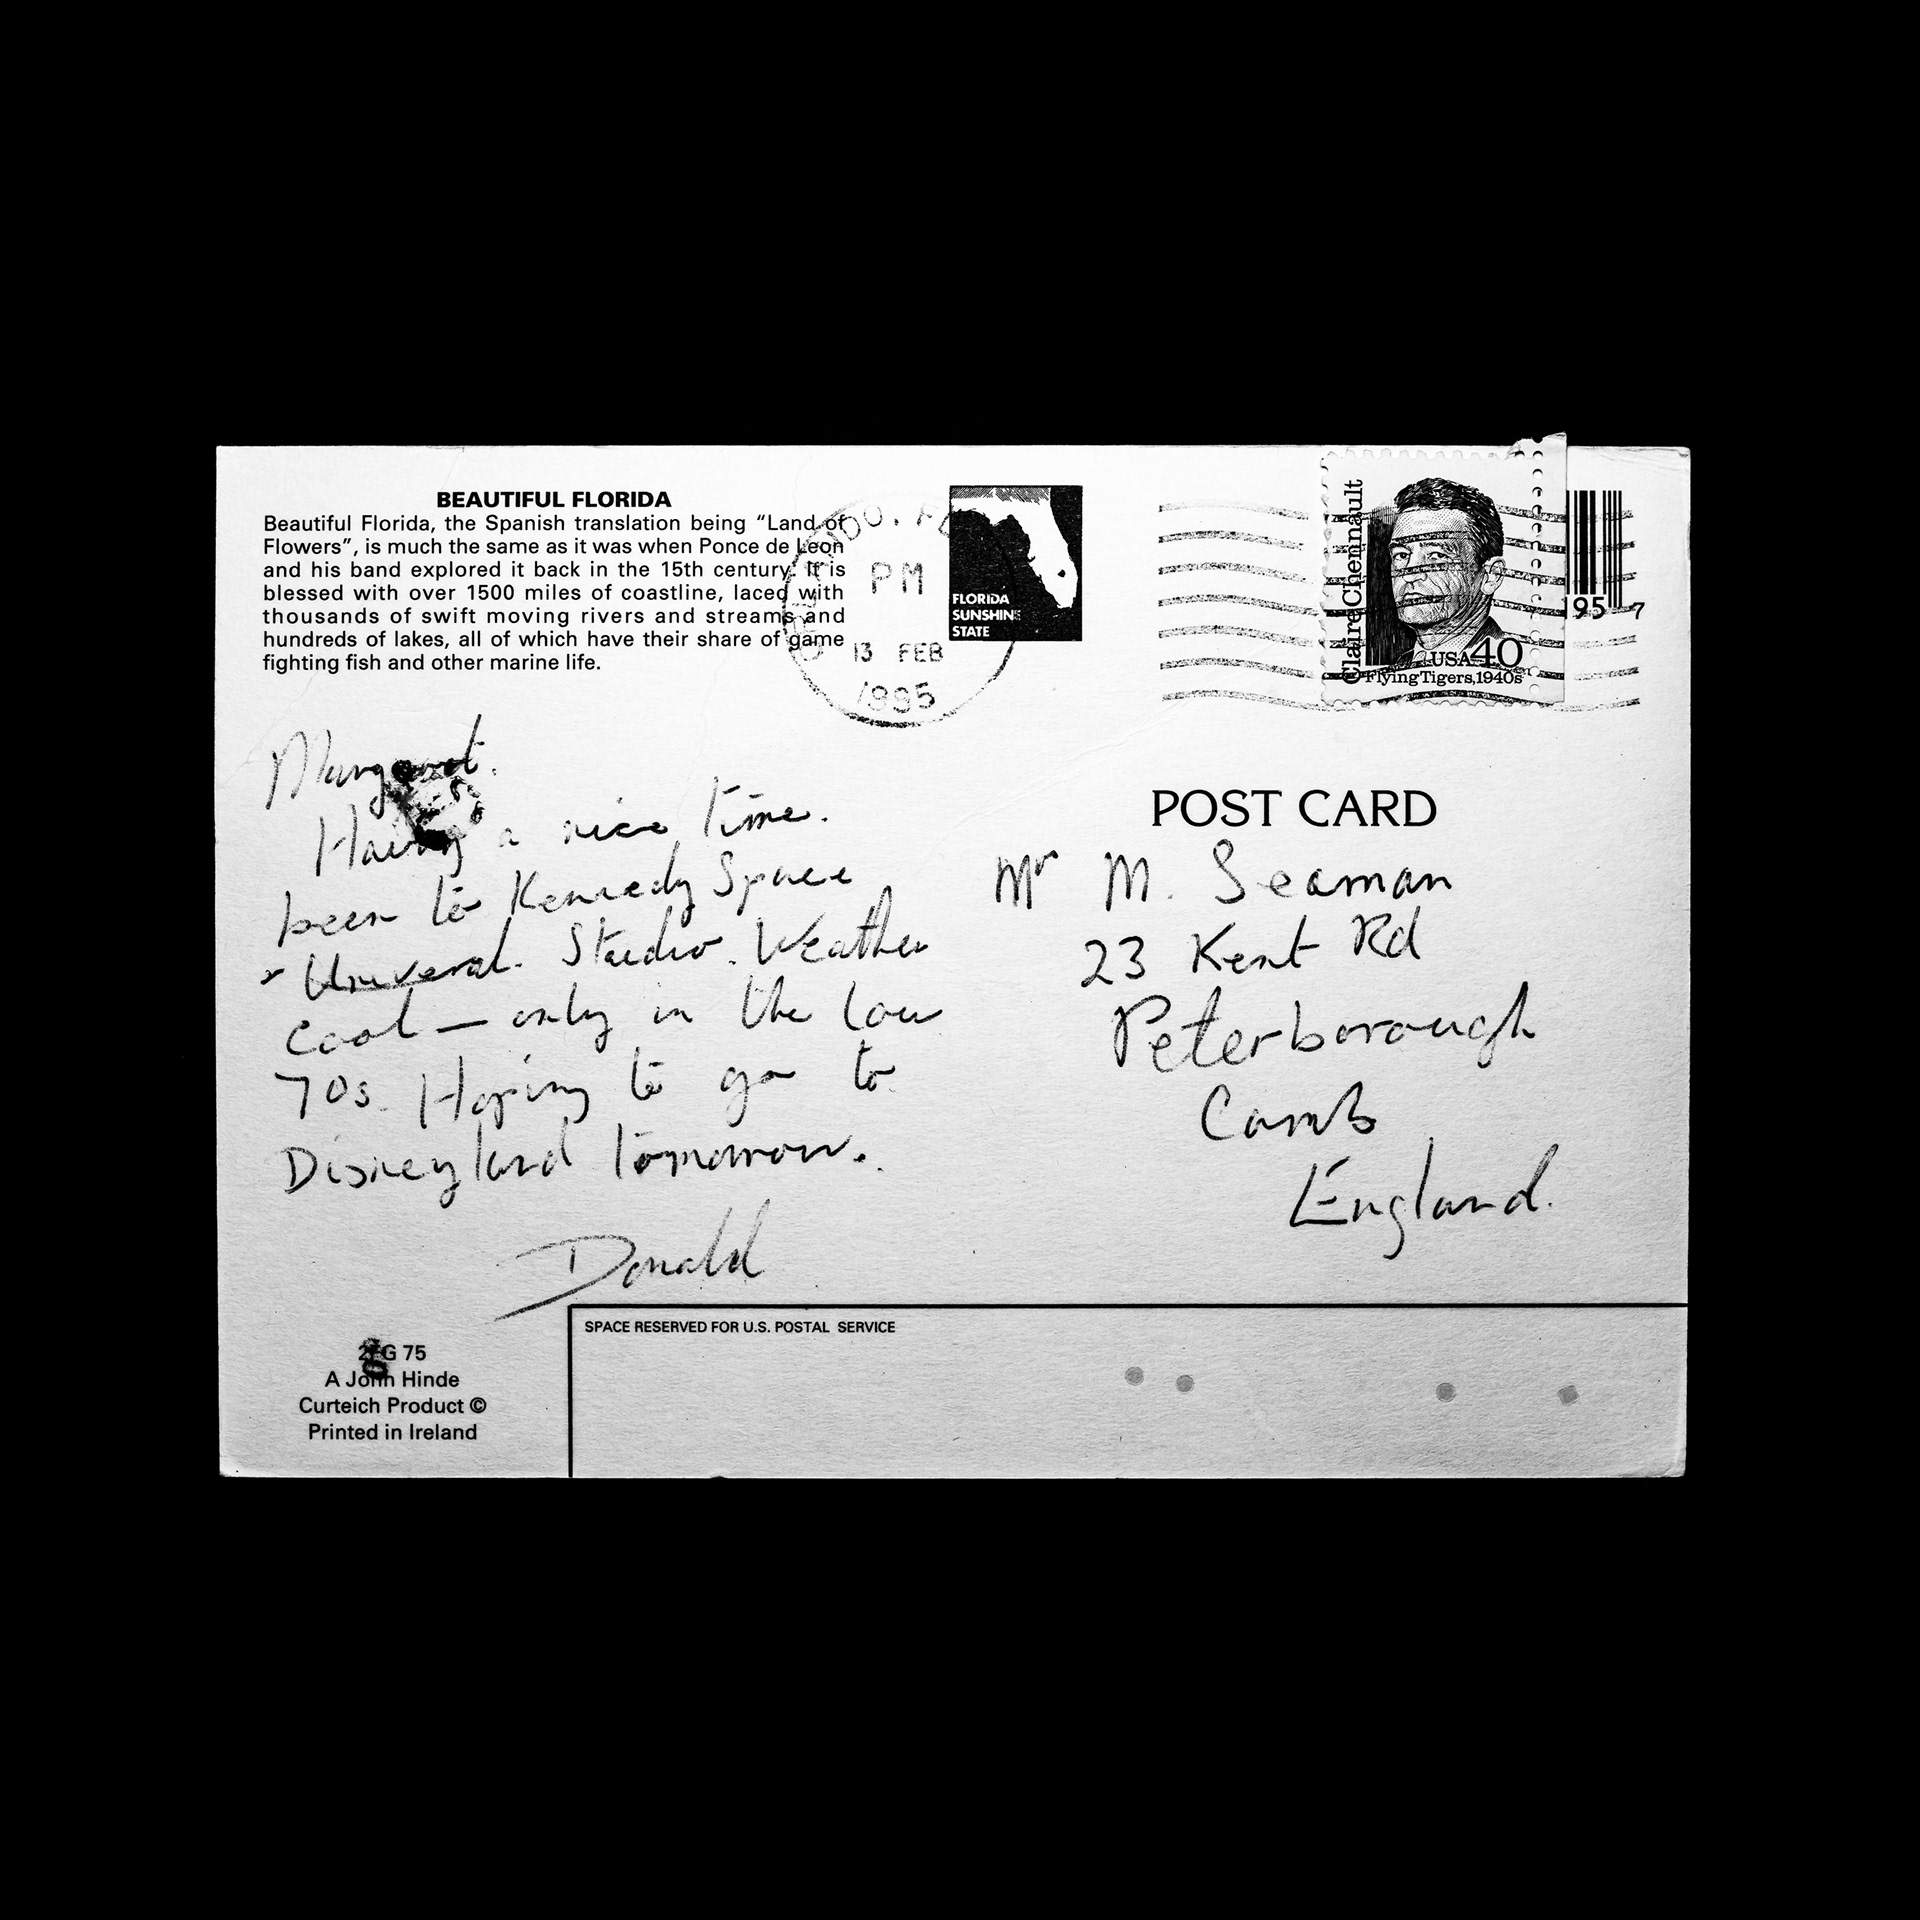 BEAUTIFUL FLORIDA
Beautiful Florida, the Spanish translation being “Land of
Flowers”, is much the same as it was when Ponce de Leon
and his band explored it back in the 15th century. It is
blessed with over 1500 miles of coastline, laced with
thousands of swift moving rivers and streams and
hundreds of lakes, all of which have their share of game
fighting fish and other marine life.
PM
13 FEB
1995
FLORIDA
SUNSHINE
STATE
Claire Chennault
USA 40
Flying Tigers, 1940s
95 7
Margaret.
Having a nice time.
been to Kennedy Space
+ Univeral. Studio. Weather
Cool — only in the low
70s. Hoping to go to
Disneyland tomorrow.
Donald
POST CARD
Mr M. Seaman
23 Kent Rd
Peterborough
Camb
England.
SPACE RESERVED FOR U.S. POSTAL SERVICE
G 75
A John Hinde
Curteich Product ©
Printed in Ireland